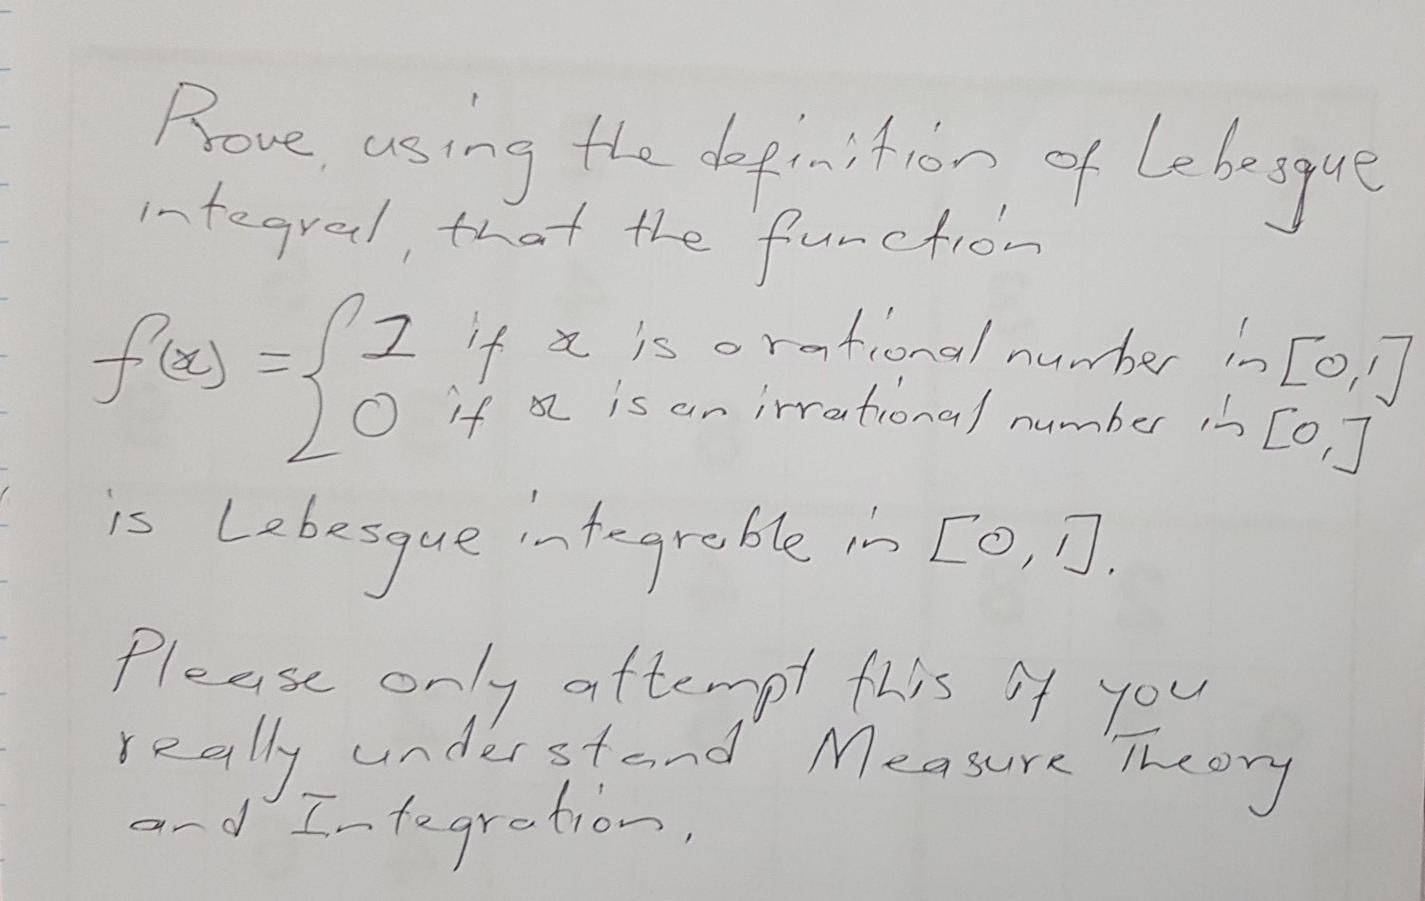 Prove, using the definition of Lebesgue
integral, that the function
f(x) = { 1 if x is a rational number in [0,1]
0 if x is an irrational number in [0,]
is Lebesgue integrable in [0,1].
Please only attempt this if you
really understand Measure Theory
and Integration.